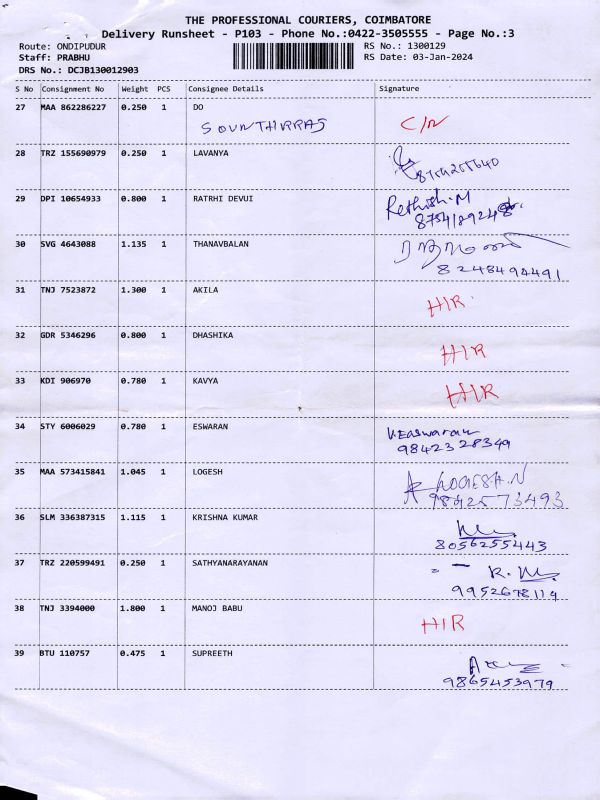 THE PROFESSIONAL COURIERS, COIMBATORE
Delivery Runsheet - P103 - Phone No.:0422-3505555 - Page No.:3
Route: ONDIPUDUR RS No.: 1300129
Staff: PRABHU RS Date: 03-Jan-2024
DRS No.: DCJB130012903
S No Consignment No Weight PCS Consignee Details Signature
27 MAA 862286227 0.250 1 DO
SOUNTHRRAJ C/N
28 TRZ 155690979 0.250 1 LAVANYA
29 DPI 10654933 0.800 1 RATRHI DEVUI Rethish.M
30 SVG 4643088 1.135 1 THANAVBALAN
8248494491
31 TNJ 7523872 1.300 1 AKILA HIR
32 GDR 5346296 0.800 1 DHASHIKA HIR
33 KDI 906970 0.780 1 KAVYA HIR
34 STY 6006029 0.780 1 ESWARAN V.Easwaran
9842328349
35 MAA 573415841 1.045 1 LOGESH LOGESH.N
9842573493
36 SLM 336387315 1.115 1 KRISHNA KUMAR
8056255443
37 TRZ 220599491 0.250 1 SATHYANARAYANAN
9952678114
38 TNJ 3394000 1.800 1 MANOJ BABU HIR
39 BTU 110757 0.475 1 SUPREETH
9865453979